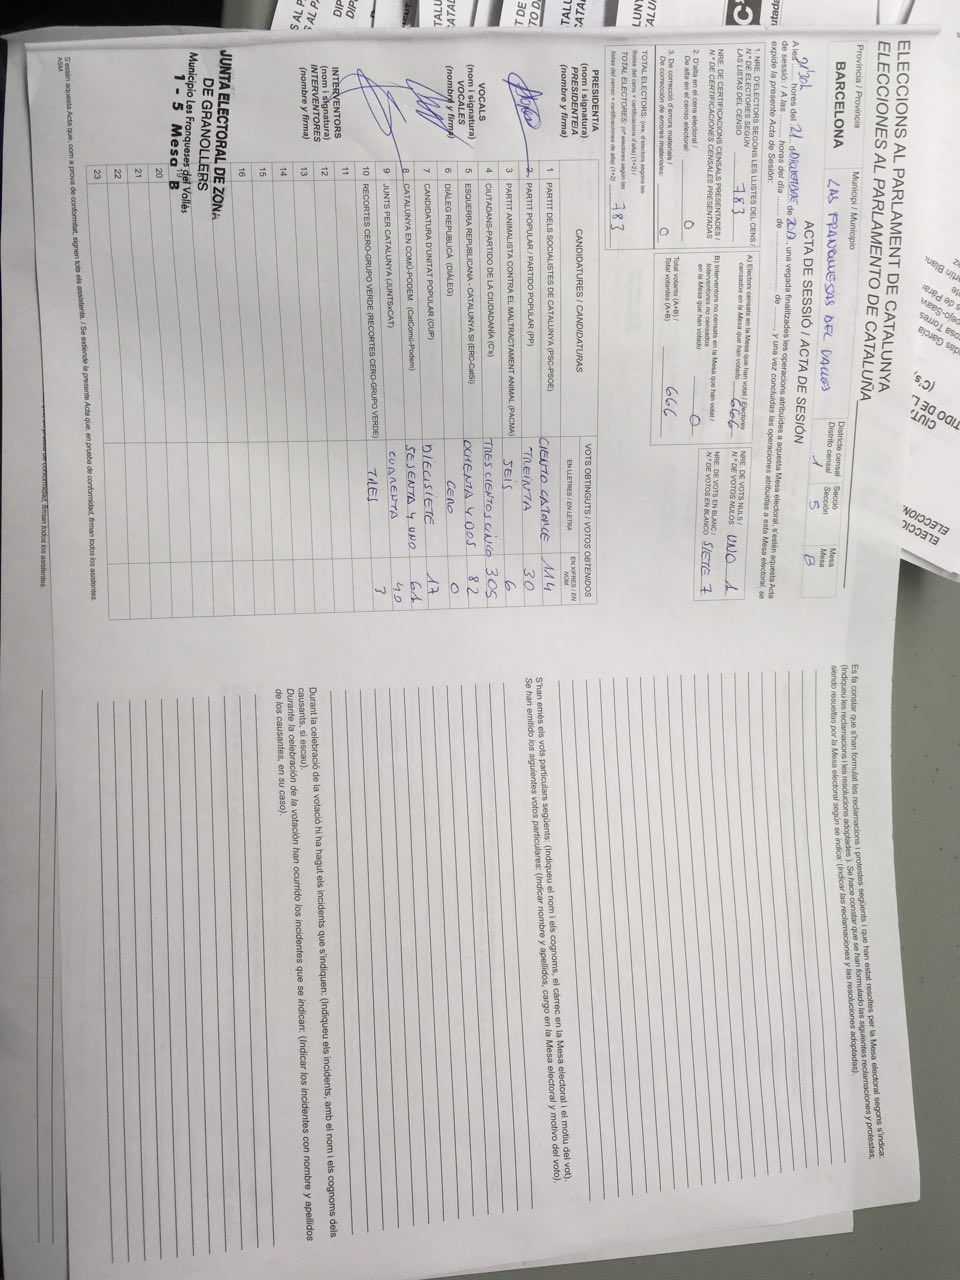 ELECCIONS AL PARLAMENT DE CATALUNYA
ELECCIONES AL PARLAMENTO DE CATALUÑA
Província / Provincia
BARCELONA
Municipi / Municipio
LAS FRANQUESAS DEL VALLES
Districte censal
Distrito censal
1
Secció
Sección
5
Mesa
Mesa
B
ACTA DE SESSIÓ / ACTA DE SESIÓN
1. NRE. D'ELECTORS SEGONS LES LLISTES DEL CENS /
N.º DE ELECTORES SEGÚN
LAS LISTAS DEL CENSO
783
NRE. DE CERTIFICACIONS CENSALS PRESENTADES /
N.º DE CERTIFICACIONES CENSALES PRESENTADAS
2. D'alta en el cens electoral /
De alta en el censo electoral:
0
3. De correcció d'errors materials /
De corrección de errores materiales:
0
TOTAL ELECTORS: (nre. d'electors segons les
llistes del cens + certificacions d'alta) (1+2) /
TOTAL ELECTORES: (nº electores según las
listas del censo + certificaciones de alta) (1+2)
783
A) Electors censats en la Mesa que han votat / Electores
censados en la Mesa que han votado
666
B) Interventors no censats en la Mesa que han votat /
Interventores no censados
en la Mesa que han votado
0
Total votants (A+B) /
Total votantes (A+B)
666
NRE. DE VOTS NULS /
N.º DE VOTOS NULOS
UNO 1
NRE. DE VOTS EN BLANC /
N.º DE VOTOS EN BLANCO
SIETE 7
CANDIDATURES / CANDIDATURAS
VOTS OBTINGUTS / VOTOS OBTENIDOS
EN LLETRES / EN LETRA
EN XIFRES / EN NÚM.
1 PARTIT DELS SOCIALISTES DE CATALUNYA (PSC-PSOE) CIENTO CATORCE 114
2 PARTIT POPULAR / PARTIDO POPULAR (PP) TREINTA 30
3 PARTIT ANIMALISTA CONTRA EL MALTRACTAMENT ANIMAL (PACMA) SEIS 6
4 CIUTADANS-PARTIDO DE LA CIUDADANÍA (C's) TRES CIENTOS CINCO 305
5 ESQUERRA REPUBLICANA - CATALUNYA SÍ (ERC-CatSí) OCHENTA Y DOS 82
6 DIÀLEG REPUBLICÀ (DIÀLEG) CERO 0
7 CANDIDATURA D'UNITAT POPULAR (CUP) DIECISIETE 17
8 CATALUNYA EN COMÚ-PODEM (CatComú-Podem) SESENTA Y UNO 61
9 JUNTS PER CATALUNYA (JUNTSxCAT) CUARENTA 40
10 RECORTES CERO-GRUPO VERDE (RECORTES CERO-GRUPO VERDE) TRES 3
11
12
13
14
15
16
19
20
21
22
23
PRESIDENT/A
(nom i signatura)
PRESIDENTE/A
(nombre y firma)
VOCALS
(nom i signatura)
VOCALES
(nombre y firma)
INTERVENTORS
(nom i signatura)
INTERVENTORES
(nombre y firma)
JUNTA ELECTORAL DE ZONA
DE GRANOLLERS
Municipio las Franqueses del Vallés
1 - 5 Mesa B
S'estén aquesta Acta que, com a prova de conformitat, signen tots els assistents. / Se extiende la presente Acta que, en prueba de conformidad, firman todos los asistentes.
Es fa constar que s'han formulat les reclamacions i protestes següents i que han estat resoltes per la Mesa electoral segons s'indica:
(Indiqueu les reclamacions i les resolucions adoptades ). Se hace constar que se han formulado las siguientes reclamaciones y protestas,
siendo resueltas por la Mesa electoral según se indica: (Indicar las reclamaciones y las resoluciones adoptadas).
S'han emès els vots particulars següents: (Indiqueu el nom i els cognoms, el càrrec en la Mesa electoral i el motiu del vot).
Se han emitido los siguientes votos particulares: (Indicar nombre y apellidos, cargo en la Mesa electoral y motivo del voto).
Durant la celebració de la votació hi ha hagut els incidents que s'indiquen: (Indiqueu els incidents, amb el nom i els cognoms dels
causants, si escau).
Durante la celebración de la votación han ocurrido los incidentes que se indican: (Indicar los incidentes con nombre y apellidos
de los causantes, en su caso).